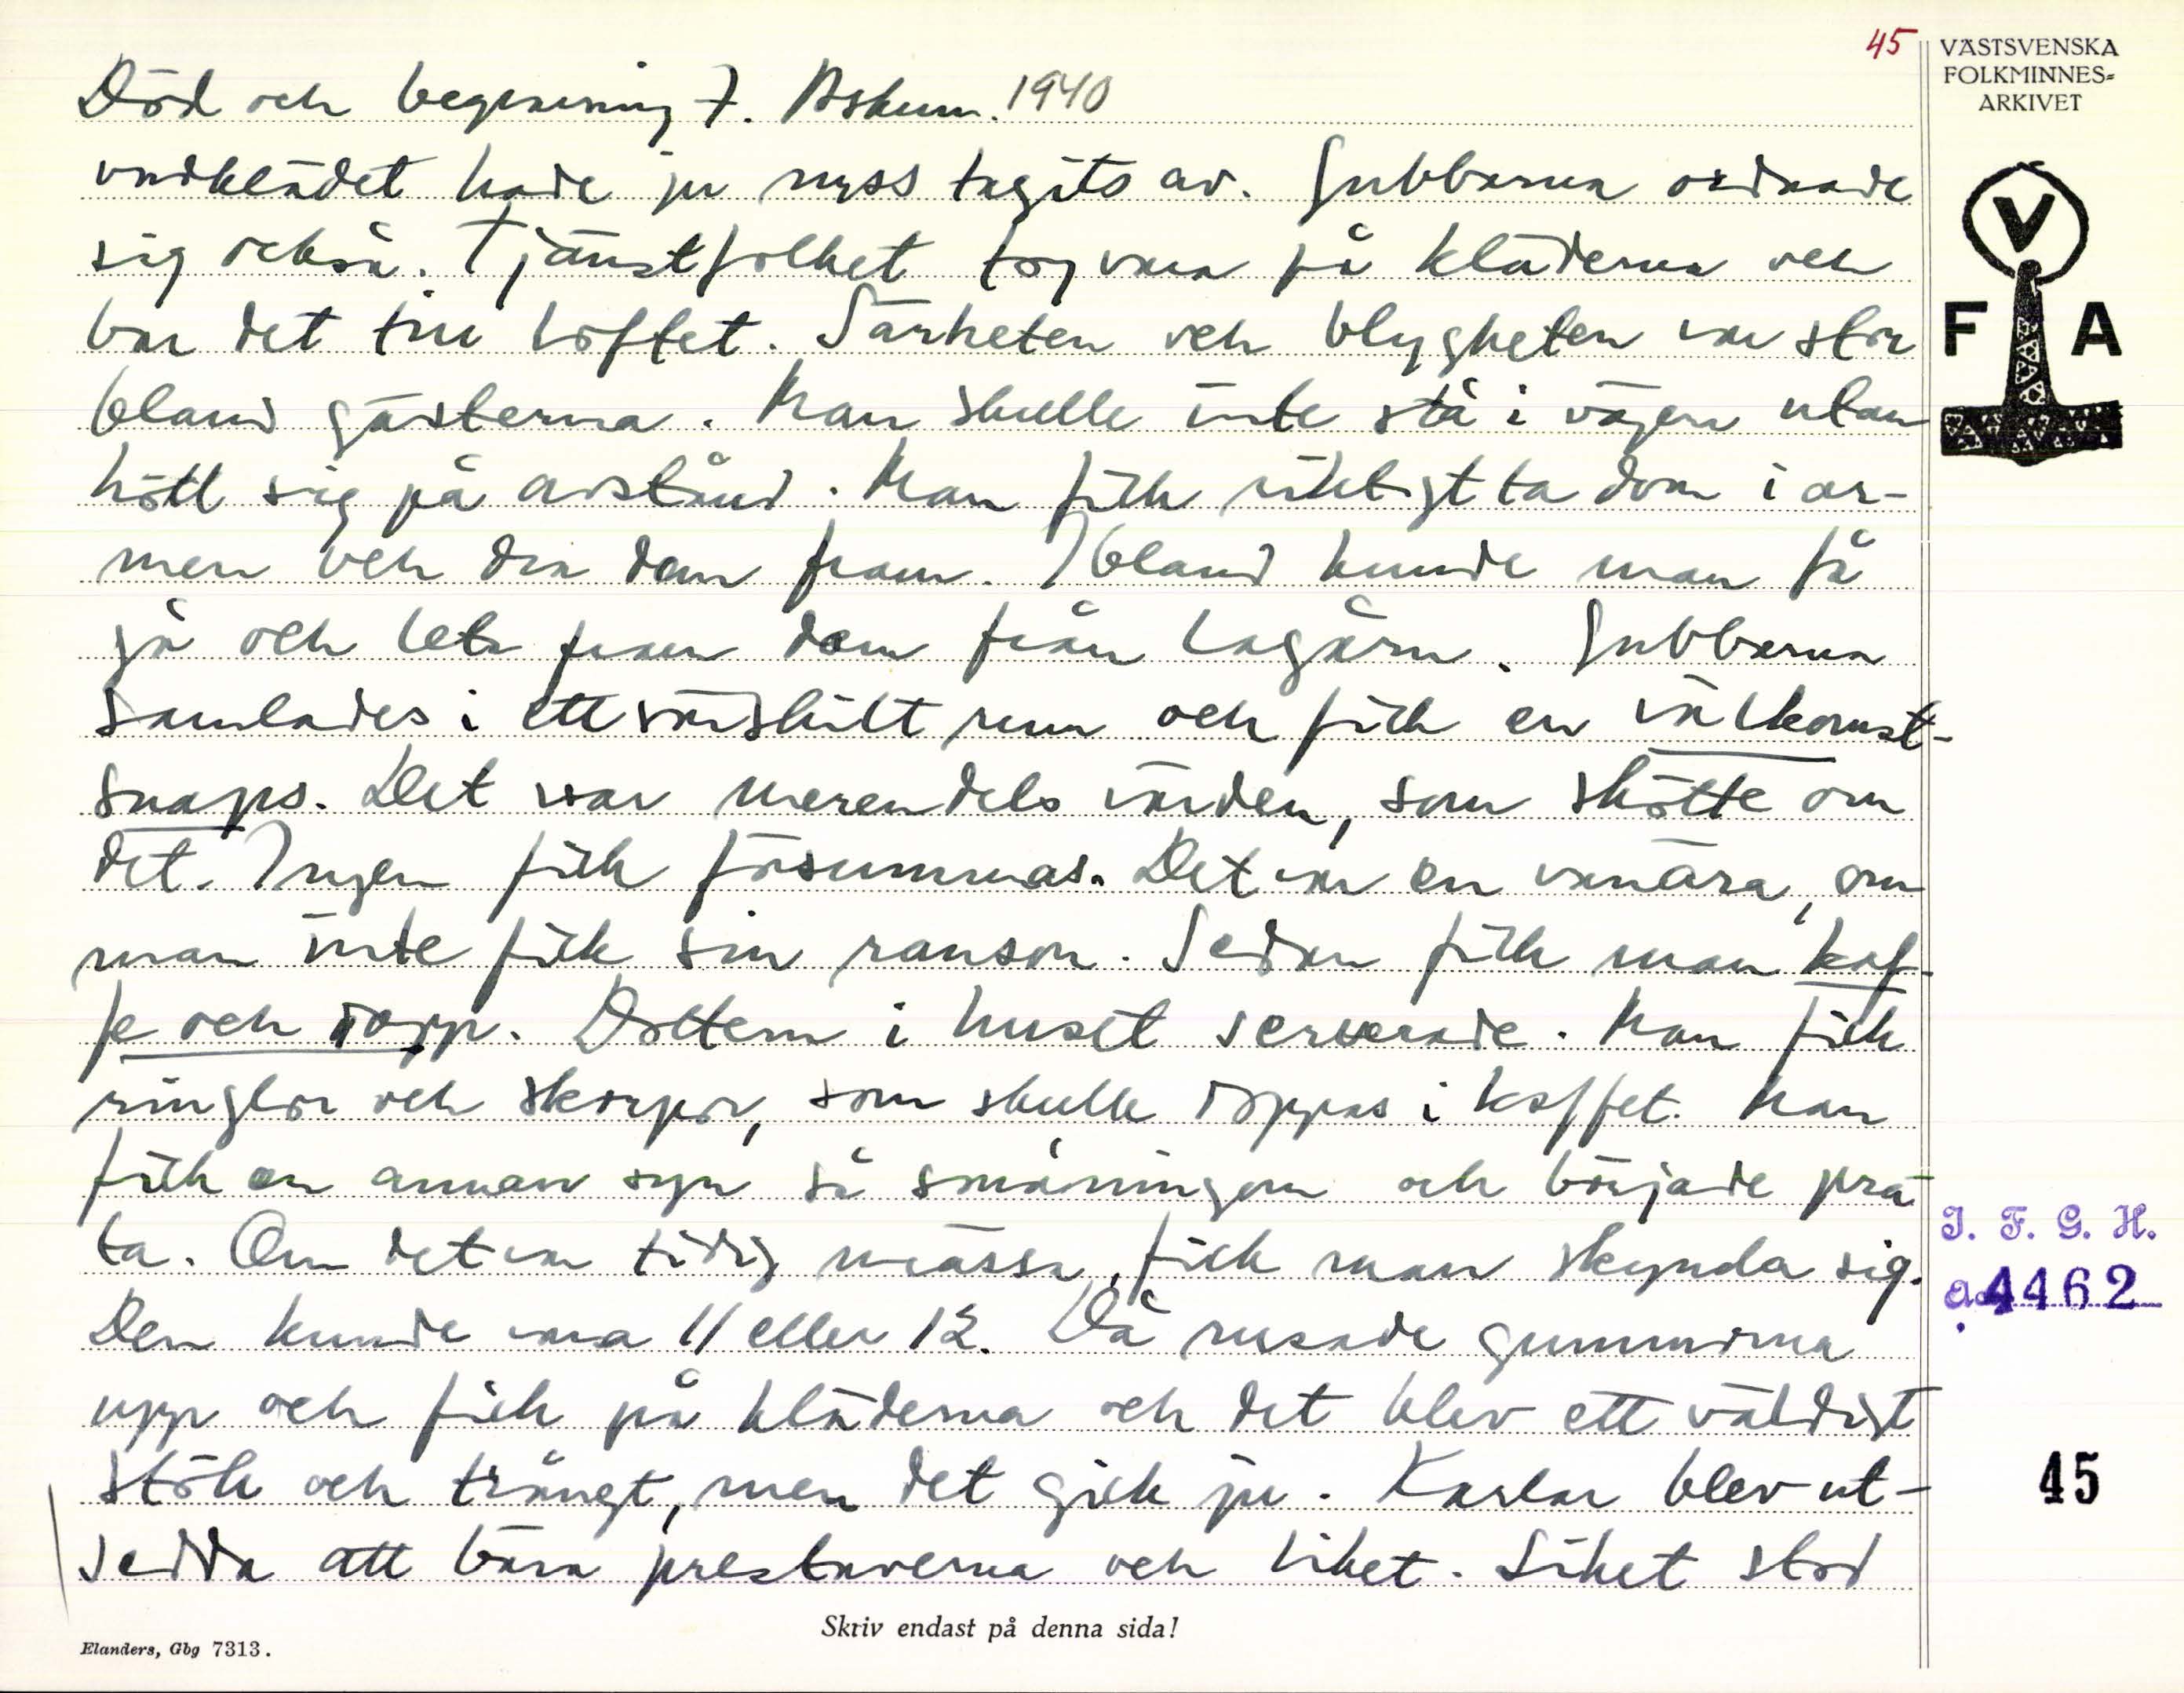 45
VÄSTSVENSKA
FOLKMINNES=
ARKIVET
Död och begravning 7. Askum. 1940
vadklädet hade ju nyss tagits av. Gubbarna ordnade
sig också. Tjänstfolket tog vara på kläderna och
bar det till loftet. Särheten och blygheten var stor
bland gästerna. Man skulle inte stå i vägen utan
höll sig på avstånd. Man fick riktigt ta dom i ar-
men och dra dem fram. Ibland kunde man få
gå och leta fram dem från lagårn. Gubbarna
samlades i ett särskilt rum och fick en välkomst-
snaps. Det var merendels värden, som skötte om
det. Ingen fick försummas. Det var en vanära, om
man inte fick sin ranson. Sedan fick man kaf-
fe och dopp. Dottern i huset serverade. Man fick
ringlor och skorpor, som skulle doppas i kaffet. Man
fick en annan syn så småningom och började pra-
ta. Om det var tidig mässa, fick man skynda sig.
Den kunde vara 11 eller 12. Då rusade gummorna
upp och fick på kläderna och det blev ett väldigt
stök och trångt, men det gick ju. Karlar blev ut-
sedda att bära prestaverna och liket. Liket stod
V
F A
I. F. G. H.
4462
45
Skriv endast på denna sida!
Elanders, Gbg 7313.